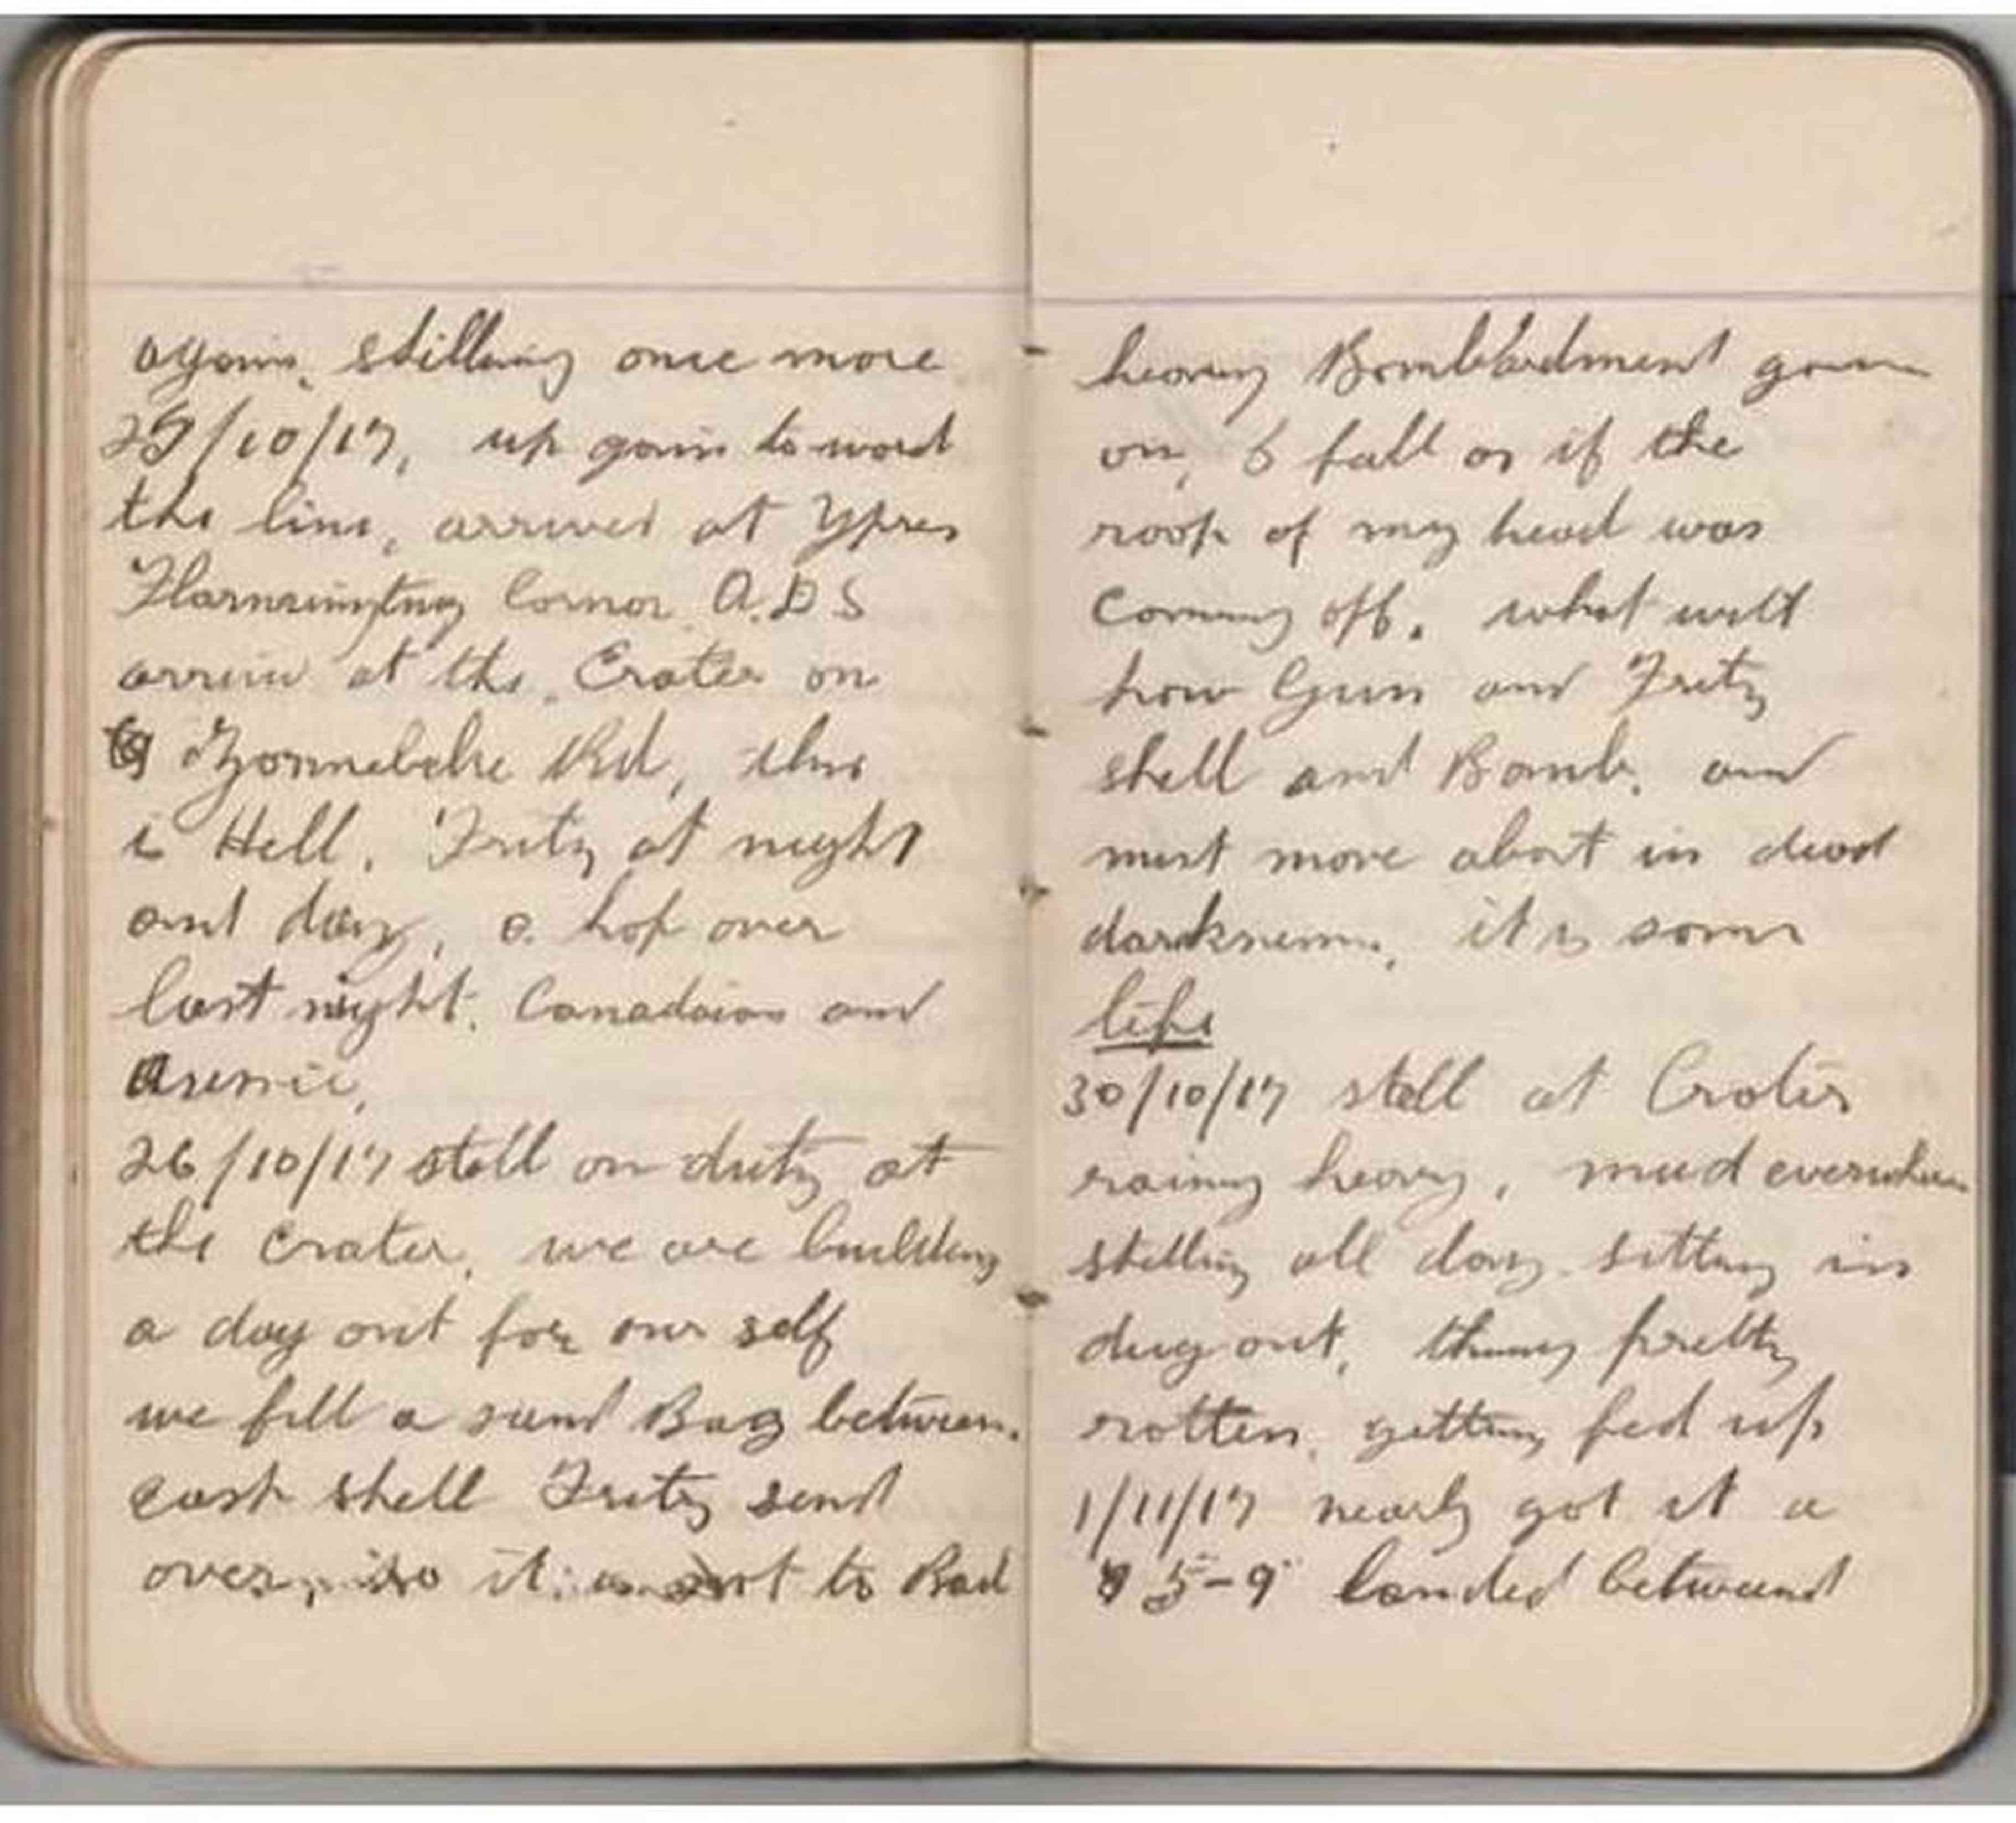 again, shelling once more
25/10/17, up gain to ward
the line, arrived at Ypres
Cornor A.D.S
arrive at the Crater on
Zonnebeke Rd, this
is Hell. Fritz at night
and day, a hop over
last night. Canadaian and
26/10/17 still on duty at
the Crater, we are building
a dug out for our self
we fill a sand Bag between.
each shell Fritz send
over, so it is not to Bad
heavy Bombardment goin
on, I fall as if the
roof of my head was
coming off. what with
how Gun and Fritz
shell and Bomb. and
must move about in dead
darkness, it is some
life
30/10/17 still at Crater
rainy heavy, mud everwhere
shelling all day sitting in
dug out, things pretty
rotten, getting fed up
1/11/17 nearly got it a
5-9 landed betweend